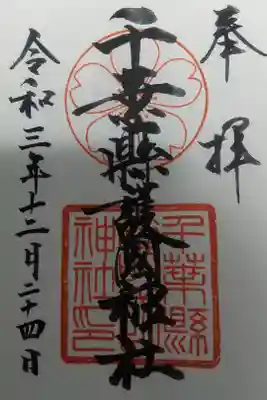 奉拝
千葉縣護國神社
千葉縣護國神社印
令和三年十二月二十四日